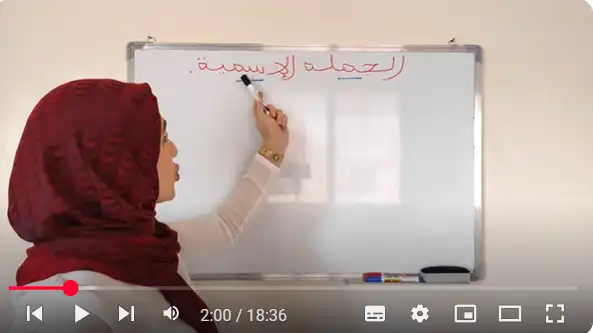 الجملة الإسمية.
2:00 / 18:36